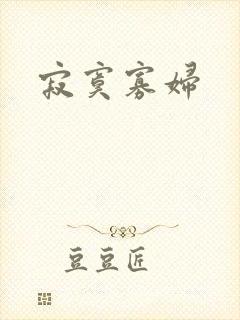 寂寞寡婦
豆豆匠